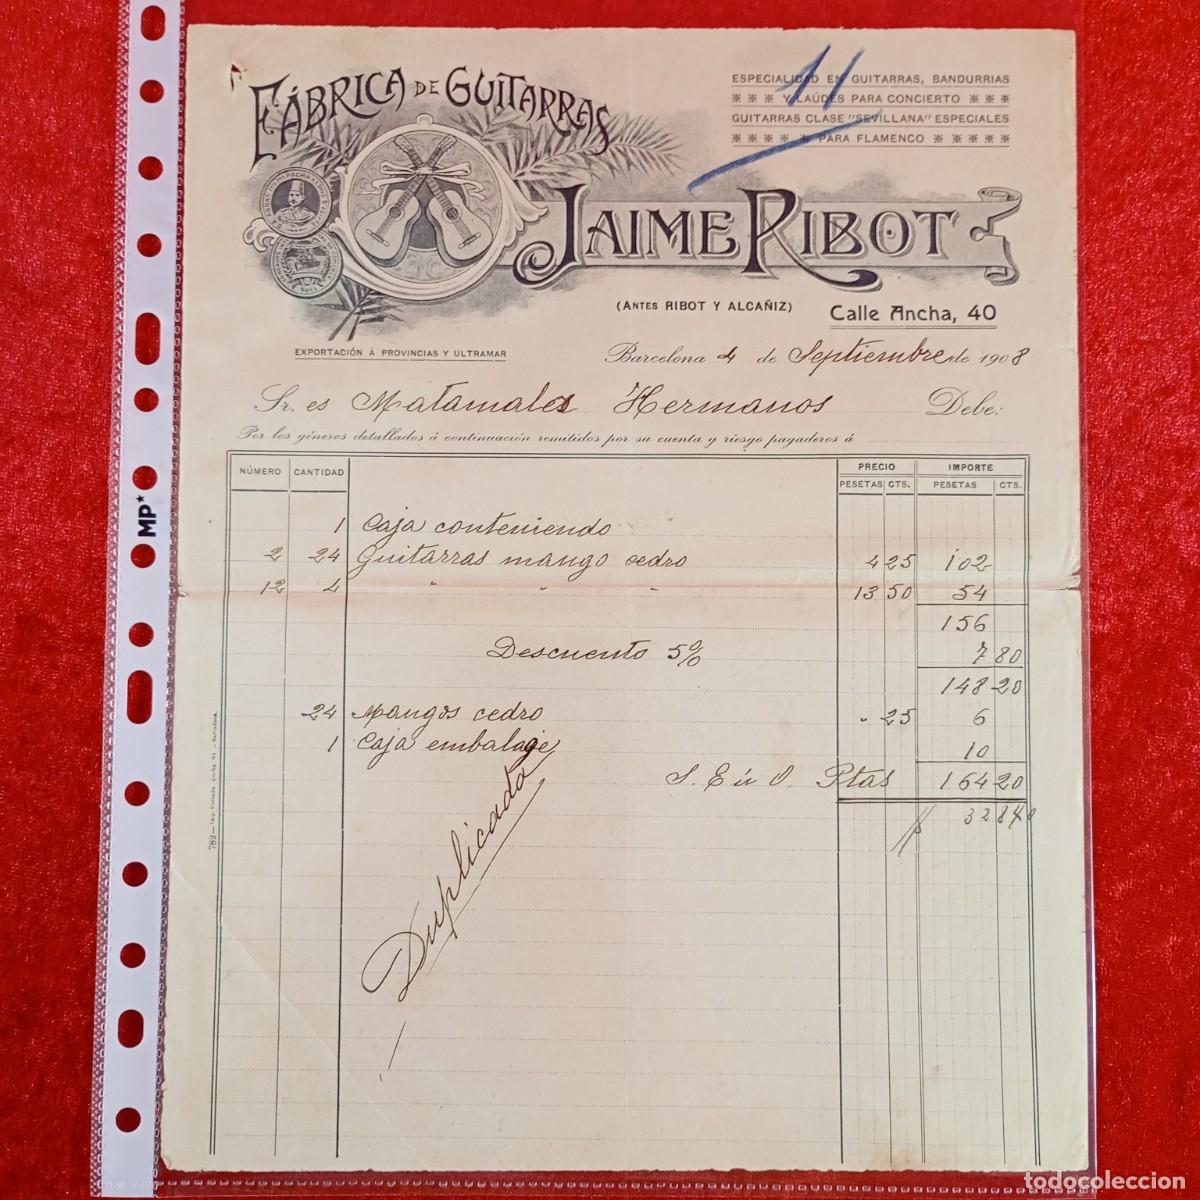 11
FÁBRICA DE GUITARRAS
ESPECIALIDAD EN GUITARRAS, BANDURRIAS
Y LAÚDES PARA CONCIERTO
GUITARRAS CLASE "SEVILLANA" ESPECIALES
PARA FLAMENCO
JAIME RIBOT
(ANTES RIBOT Y ALCAÑIZ)
Calle Ancha, 40
EXPORTACIÓN Á PROVINCIAS Y ULTRAMAR
Barcelona 4 de Septiembre de 1908
Sr. es Matamales Hermanos Debe:
Por los géneros detallados á continuación remitidos por su cuenta y riesgo pagaderos á
NÚMERO CANTIDAD PRECIO IMPORTE
PESETAS CTS. PESETAS CTS.
1 Caja conteniendo
2 24 Guitarras mango cedro 4 25 102
12 4 " " " 13 50 54
156
Descuento 5% 7 80
148 20
24 Mangos cedro " 25 6
1 Caja embalage 10
S. E ú O. Ptas 164 20
Duplicada
MP
todocoleccion